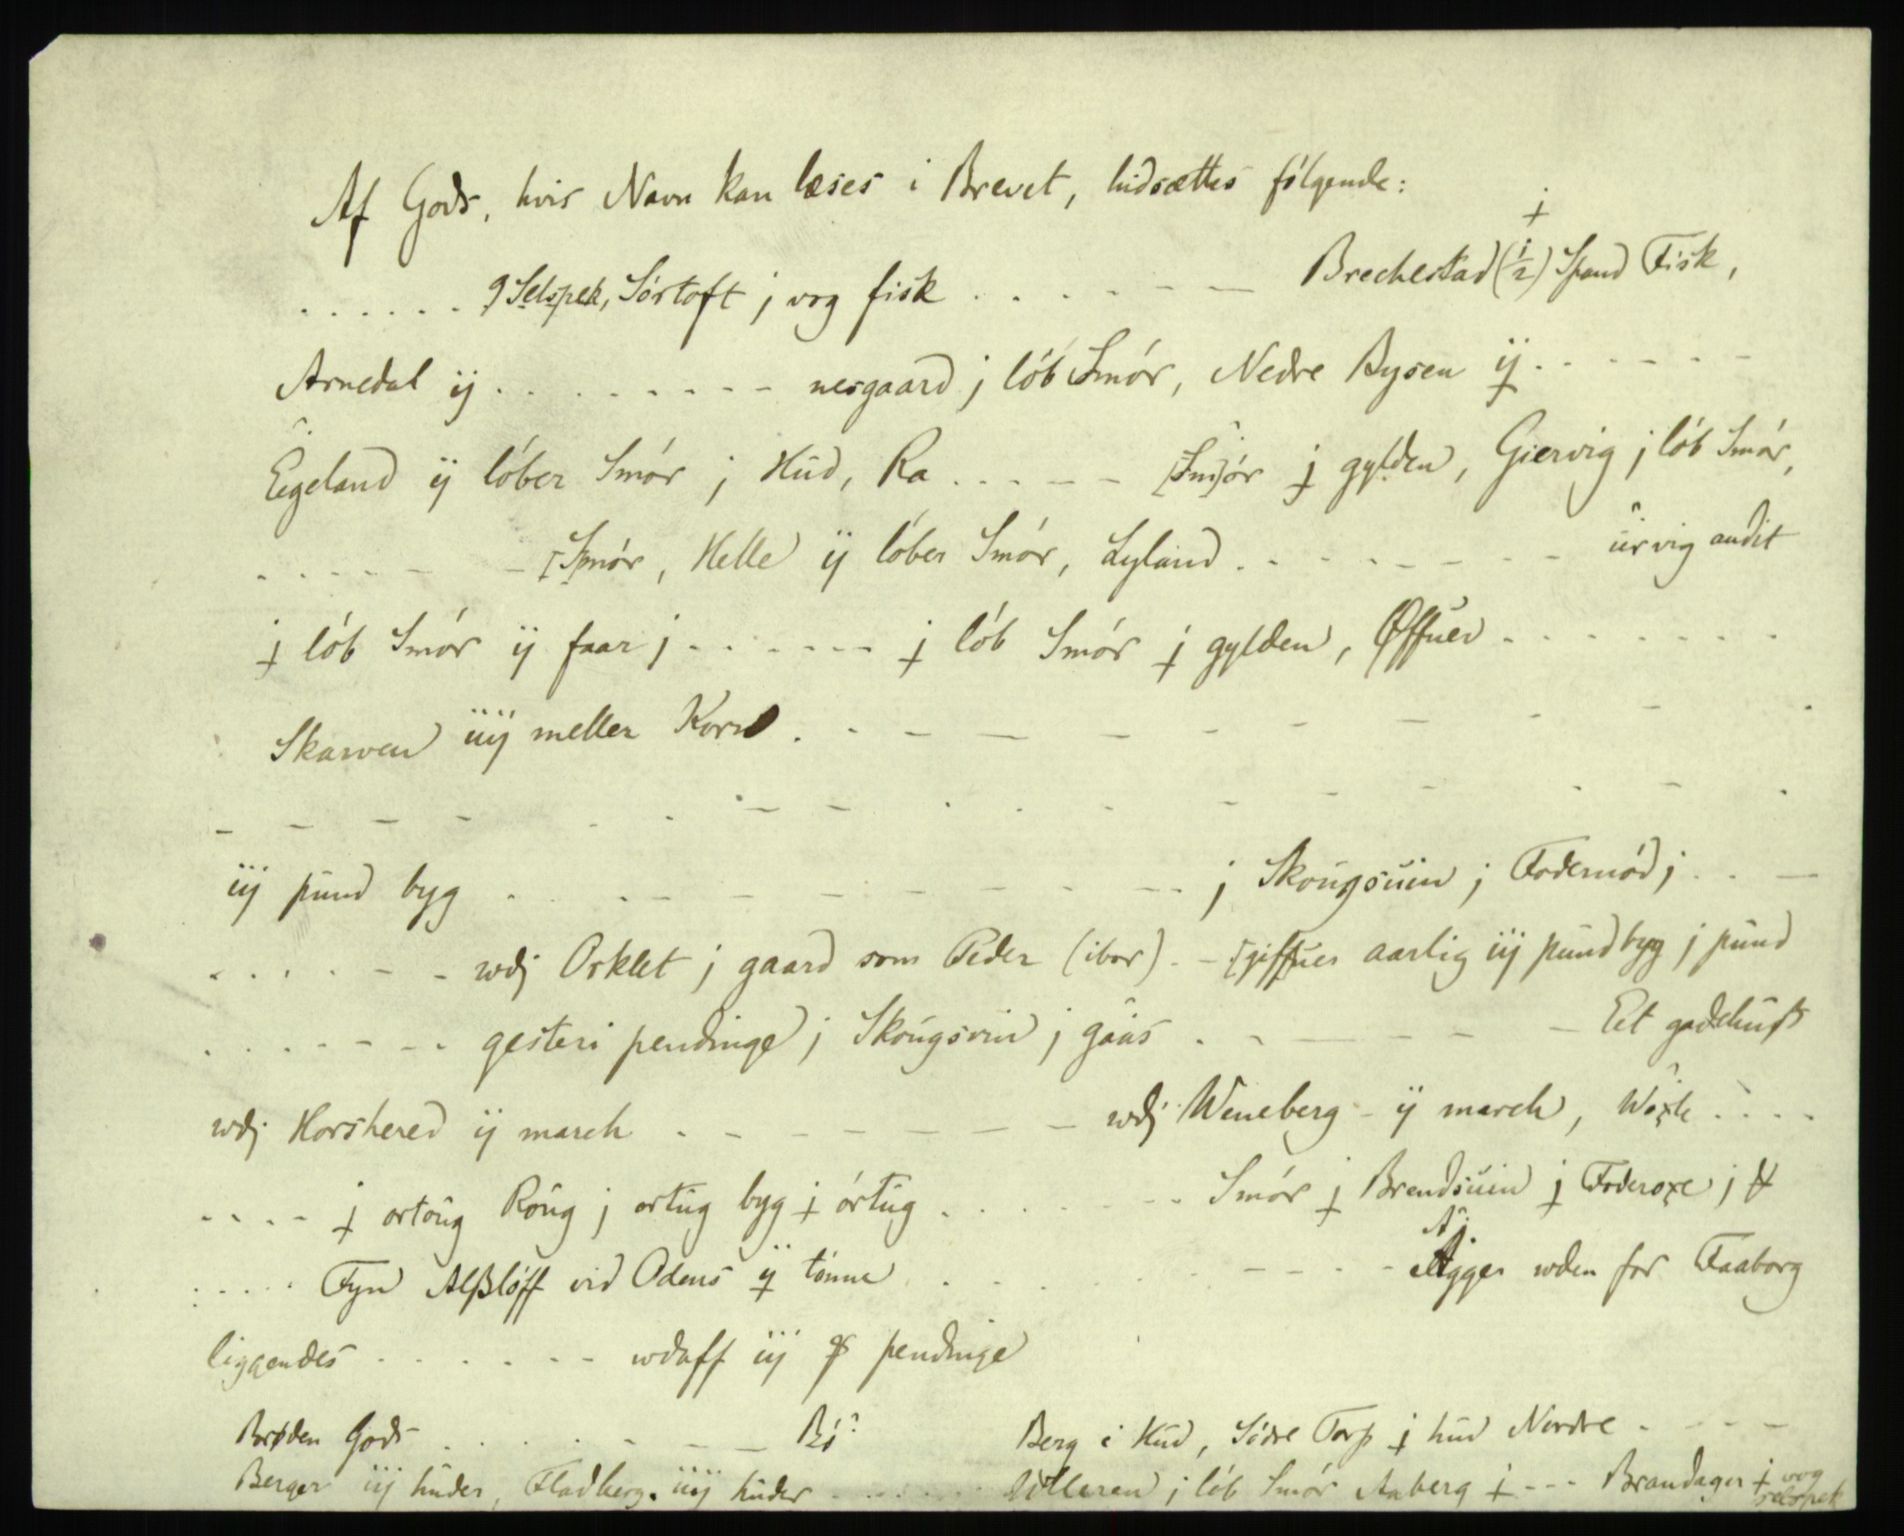 Af Gods, hvis Navn kan læses i Brevet, hidsættes følgende:
. . . . . . 9 Selspek, Sórtoft j vog fisk . . . . - - - Brechestad (½) Spand Fisk,
Arnedal ij . . . . . - - - - nesgaard j lób Smór, Nedre Bysen ij . . - - - -
Eigeland ij lóber Smór j Hud, Ra . . - - - [Sm]ór j gylden, Giervig j lób Smór,
. - - - - - [S]mór, Helle ij lóber Smór, Lyland . - - - - - - - urvig andit
j lób Smór ij faar j - . . - - - j lób Smór j gylden, Øffuer - - - - - - - -
Skarven iiij meller Korn . - - - - - - - - .
- - - - . . - - . . . - - - . - .
iij pund byg . . . - - - - - - - j Skougsuin j Fodernód j . . -
. . . . - - - wdj Orklet j gaard som Peder (ibor) . - [giffuer aarlig iij pund byg j pund
. . . . - - . gesteri pendinge j Skougsvin j gaas . - - - - - Et gadehuß
wdj Horshered ij march . - - - - - - - wdj Weneberg - ij march, Woxle . . . .
. - - - j ortoug Roug j ortug byg j órtug . . . - - - - Smór j Brendsuin j Foderoxe j
. . . . Fyn Alßlóff vid Odens ij tónne . . . . . - - - - Agger uden for Faaborg
liggendes - . . . - - - wdaff iij pendinge
Brøden Gods . . . . - - - Bó? Berg i Hud, Södre Torp j hud Nordre . - - -
Berger iij huder, Fladberg. iiij huder . . . . . . j lób Smór Aaberg j - - - Brandager j vog
selspek